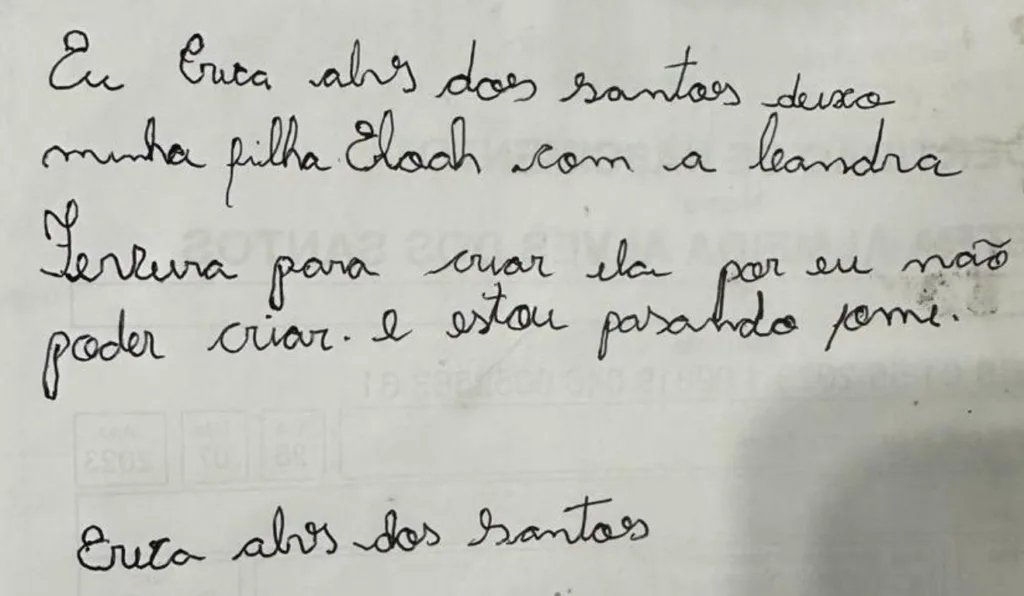 Eu Erica alvs dos santos deixo
minha filha Eloah com a leandra
Ferreira para criar ela por eu não
poder criar. e estou pasando fome.
Erica alvs dos santos